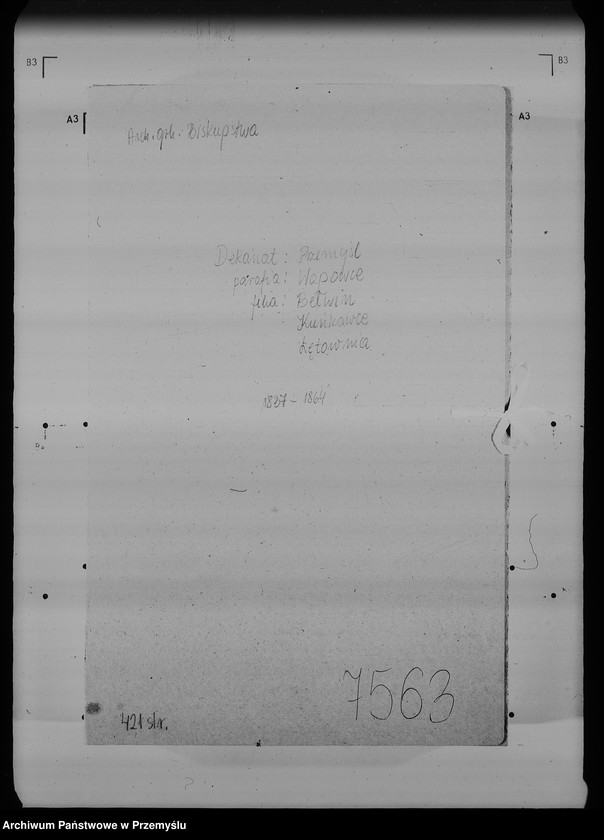 B3
B3
A3
A3
Arch. gr.k. Biskupstwa
Dekanat: Przemyśl
parafia: Wapowce
filia: Bełwin
Kuńkowce
Łętownia
1837 - 1864
7563
421 str.
Archiwum Państwowe w Przemyślu